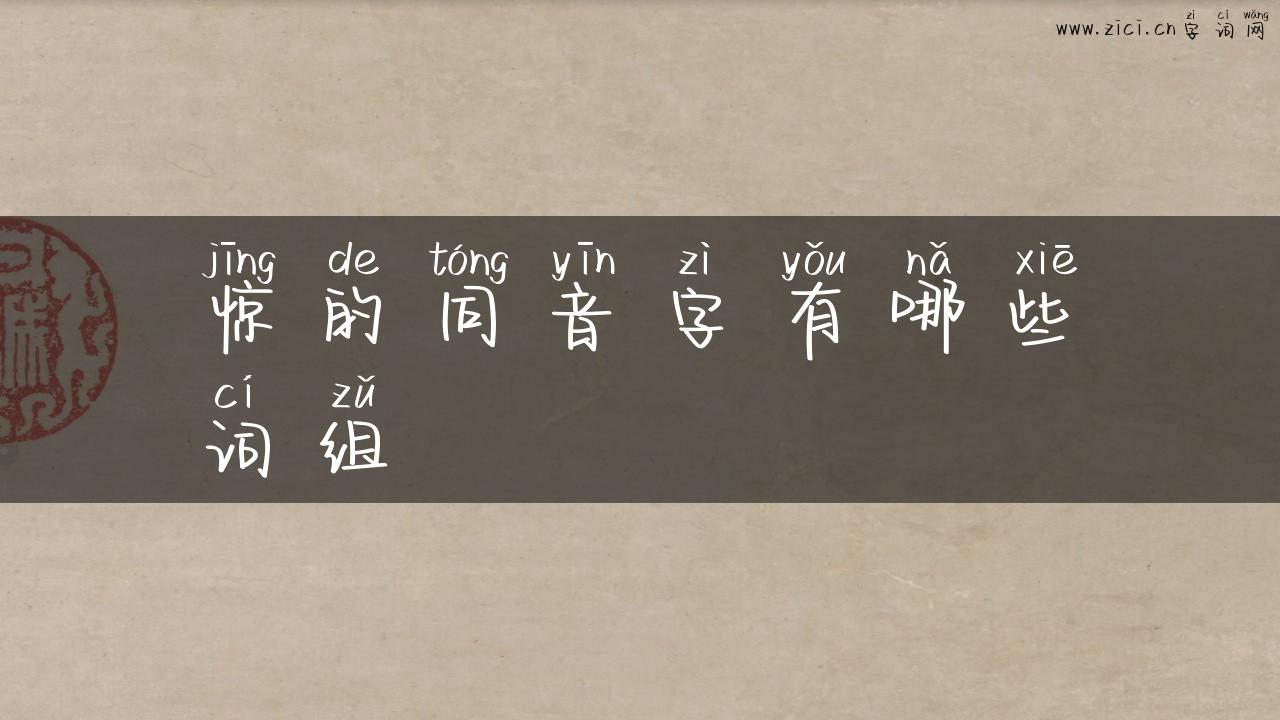 zì cí wǎng
www.zici.cn字词网
jīng de tóng yīn zì yǒu nǎ xiē
惊的同音字有哪些
cí zǔ
词组